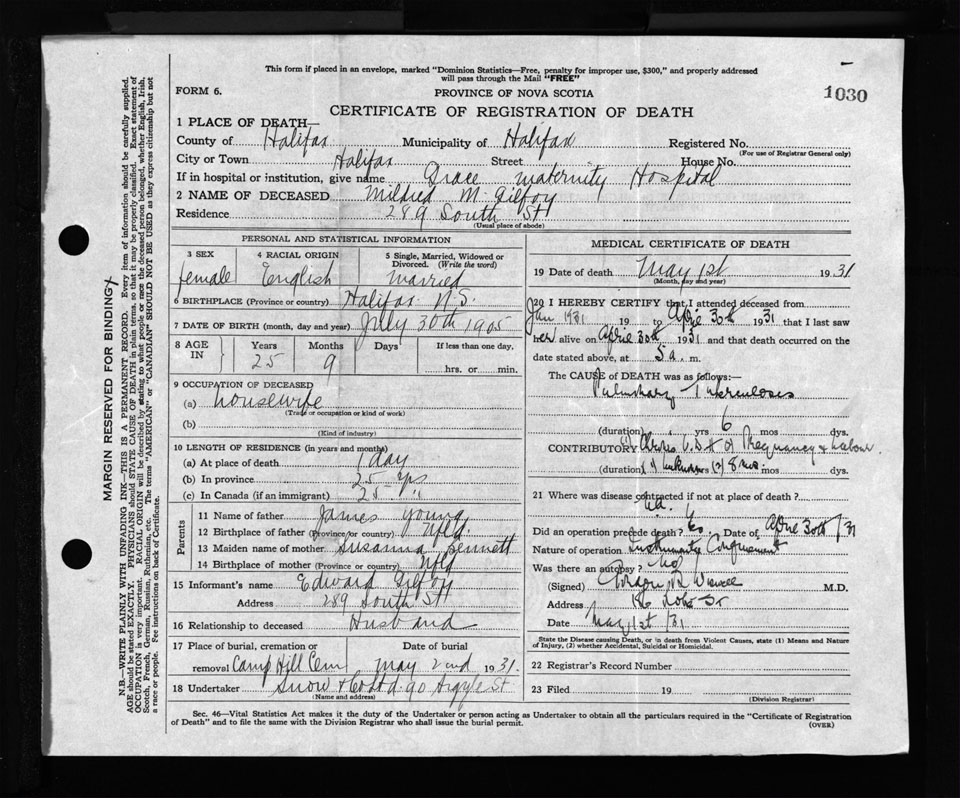 This form if placed in an envelope, marked "Dominion Statistics—Free, penalty for improper use, $300," and properly addressed
will pass through the Mail "FREE"
FORM 6.
PROVINCE OF NOVA SCOTIA
1030
CERTIFICATE OF REGISTRATION OF DEATH
1 PLACE OF DEATH—
County of Halifax Municipality of Halifax Registered No.
(For use of Registrar General only)
City or Town Halifax Street House No.
If in hospital or institution, give name Grace Maternity Hospital
2 NAME OF DECEASED Mildred M. Gilfoy
Residence 289 South St
(Usual place of abode)
PERSONAL AND STATISTICAL INFORMATION
3 SEX
4 RACIAL ORIGIN
5 Single, Married, Widowed or
Divorced. (Write the word)
female English married
6 BIRTHPLACE (Province or country) Halifax N.S.
7 DATE OF BIRTH (month, day and year) July 30th 1905
8 AGE
IN
Years Months Days If less than one day,
25 9
hrs. or min.
9 OCCUPATION OF DECEASED
(a) housewife
(Trade or occupation or kind of work)
(b)
(Kind of industry)
10 LENGTH OF RESIDENCE (in years and months)
(a) At place of death 1 day
(b) In province 25 yrs
(c) In Canada (if an immigrant) 25 "
Parents
11 Name of father James Young
12 Birthplace of father (Province or country) Nfld.
13 Maiden name of mother Susanna Bennett
14 Birthplace of mother (Province or Country) Nfld
15 Informant's name Edward Gilfoy
Address 289 South St
16 Relationship to deceased Husband
17 Place of burial, cremation or Date of burial
removal Camp Hill Cem May 2nd 1931.
18 Undertaker Snow & Co Ltd. 90 Argyle St
(Name and address)
MEDICAL CERTIFICATE OF DEATH
19 Date of death May 1st 1931
(Month, day and year)
20 I HEREBY CERTIFY that I attended deceased from
Jan 1931 19 to April 30th 1931 that I last saw
her alive on April 30th 1931 and that death occurred on the
date stated above, at 5 a. m.
The CAUSE of DEATH was as follows:—
Pulmonary Tuberculosis
(duration) yrs 6 mos dys.
CONTRIBUTORY of Pregnancy & Labour
(duration) (1) unknown (2) 8 mos. mos dys.
21 Where was disease contracted if not at place of death?
Did an operation precede death? Date of April 30th/31
Nature of operation
Was there an autopsy? No
(Signed) M.D.
Address
Date May 1st/31
State the Disease causing Death, or in death from Violent Causes, state (1) Means and Nature
of Injury, (2) whether Accidental, Suicidal or Homicidal.
22 Registrar's Record Number
23 Filed 19
(Division Registrar)
Sec. 46—Vital Statistics Act makes it the duty of the Undertaker or person acting as Undertaker to obtain all the particulars required in the "Certificate of Registration
of Death" and to file the same with the Division Registrar who shall issue the burial permit.
(OVER)
MARGIN RESERVED FOR BINDING
N.B.—WRITE PLAINLY WITH UNFADING INK—THIS IS A PERMANENT RECORD. Every item of information should be carefully supplied.
AGE should be stated EXACTLY. PHYSICIANS should STATE CAUSE OF DEATH in plain terms, so that it may be properly classified. Exact statement of
OCCUPATION is very important. RACIAL ORIGIN will be described by stating to what people or race the deceased person belonged, whether English, Irish,
Scotch, French, German, Russian, Ruthenian, etc. The terms "AMERICAN" or "CANADIAN" SHOULD NOT BE USED as they express citizenship but not
a race or people. See instructions on back of Certificate.